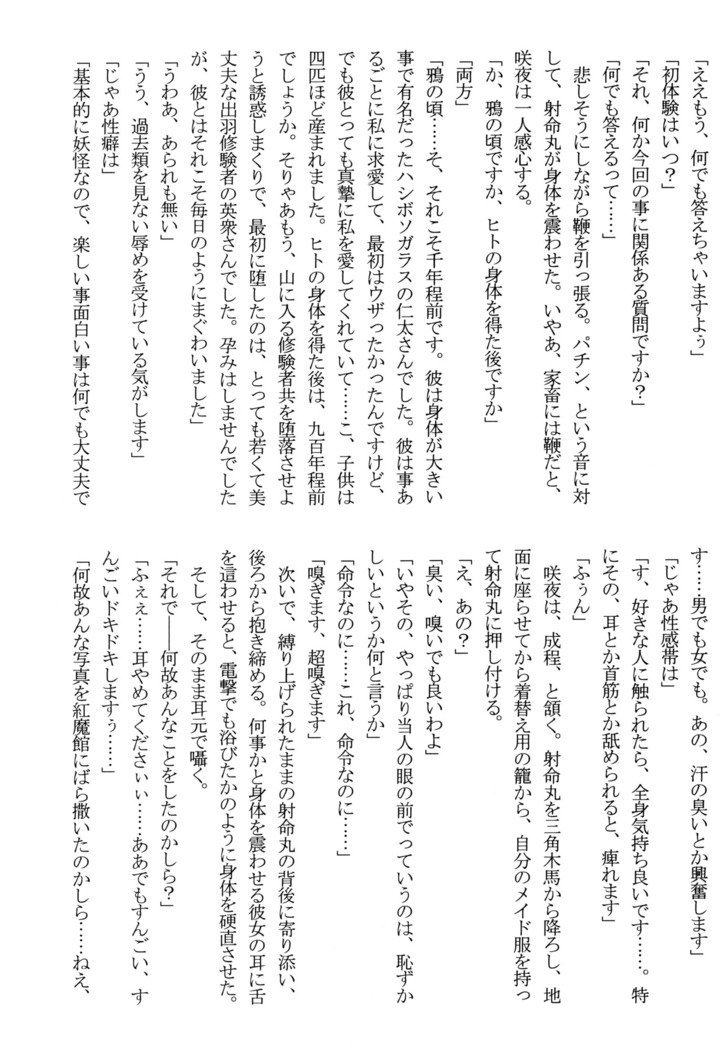 「ええもう、何でも答えちゃいますよぅ」
「初体験はいつ？」
「それ、何か今回の事に関係ある質問ですか？」
「何でも答えるって……」
　悲しそうにしながら鞭を引っ張る。パチン、という音に対
して、射命丸が身体を震わせた。いやあ、家畜には鞭だと、
咲夜は一人感心する。
「か、鴉の頃ですか、ヒトの身体を得た後ですか」
「両方」
「鴉の頃……そ、それこそ千年程前です。彼は身体が大きい
事で有名だったハシボソガラスの仁太さんでした。彼は事あ
るごとに私に求愛して、最初はウザったかったんですけど、
でも彼とっても真摯に私を愛してくれていて……こ、子供は
四匹ほど産まれました。ヒトの身体を得た後は、九百年程前
でしょうか。そりゃあもう、山に入る修験者共を堕落させよ
うと誘惑しまくりで、最初に堕したのは、とっても若くて美
丈夫な出羽修験者の英衆さんでした。孕みはしませんでした
が、彼とはそれこそ毎日のようにまぐわいました」
「うわあ、あられも無い」
「うう、過去類を見ない辱めを受けている気がします」
「じゃあ性癖は」
「基本的に妖怪なので、楽しい事面白い事は何でも大丈夫で
す……男でも女でも。あの、汗の臭いとか興奮します」
「じゃあ性感帯は」
「す、好きな人に触られたら、全身気持ち良いです……。特
にその、耳とか首筋とか舐められると、痺れます」
「ふぅん」
　咲夜は、成程、と頷く。射命丸を三角木馬から降ろし、地
面に座らせてから着替え用の籠から、自分のメイド服を持っ
て射命丸に押し付ける。
「え、あの？」
「臭い、嗅いでも良いわよ」
「いやその、やっぱり当人の眼の前でっていうのは、恥ずか
しいというか何と言うか」
「命令なのに……これ、命令なのに……」
「嗅ぎます、超嗅ぎます」
　次いで、縛り上げられたままの射命丸の背後に寄り添い、
後ろから抱き締める。何事かと身体を震わせる彼女の耳に舌
を這わせると、電撃でも浴びたかのように身体を硬直させた。
　そして、そのまま耳元で囁く。
「それで――何故あんなことをしたのかしら？」
「ふぇぇ……耳やめてくださぃぃ……ああでもすんごい、す
んごいドキドキしますぅ……」
「何故あんな写真を紅魔館にばら撒いたのかしら……ねえ、